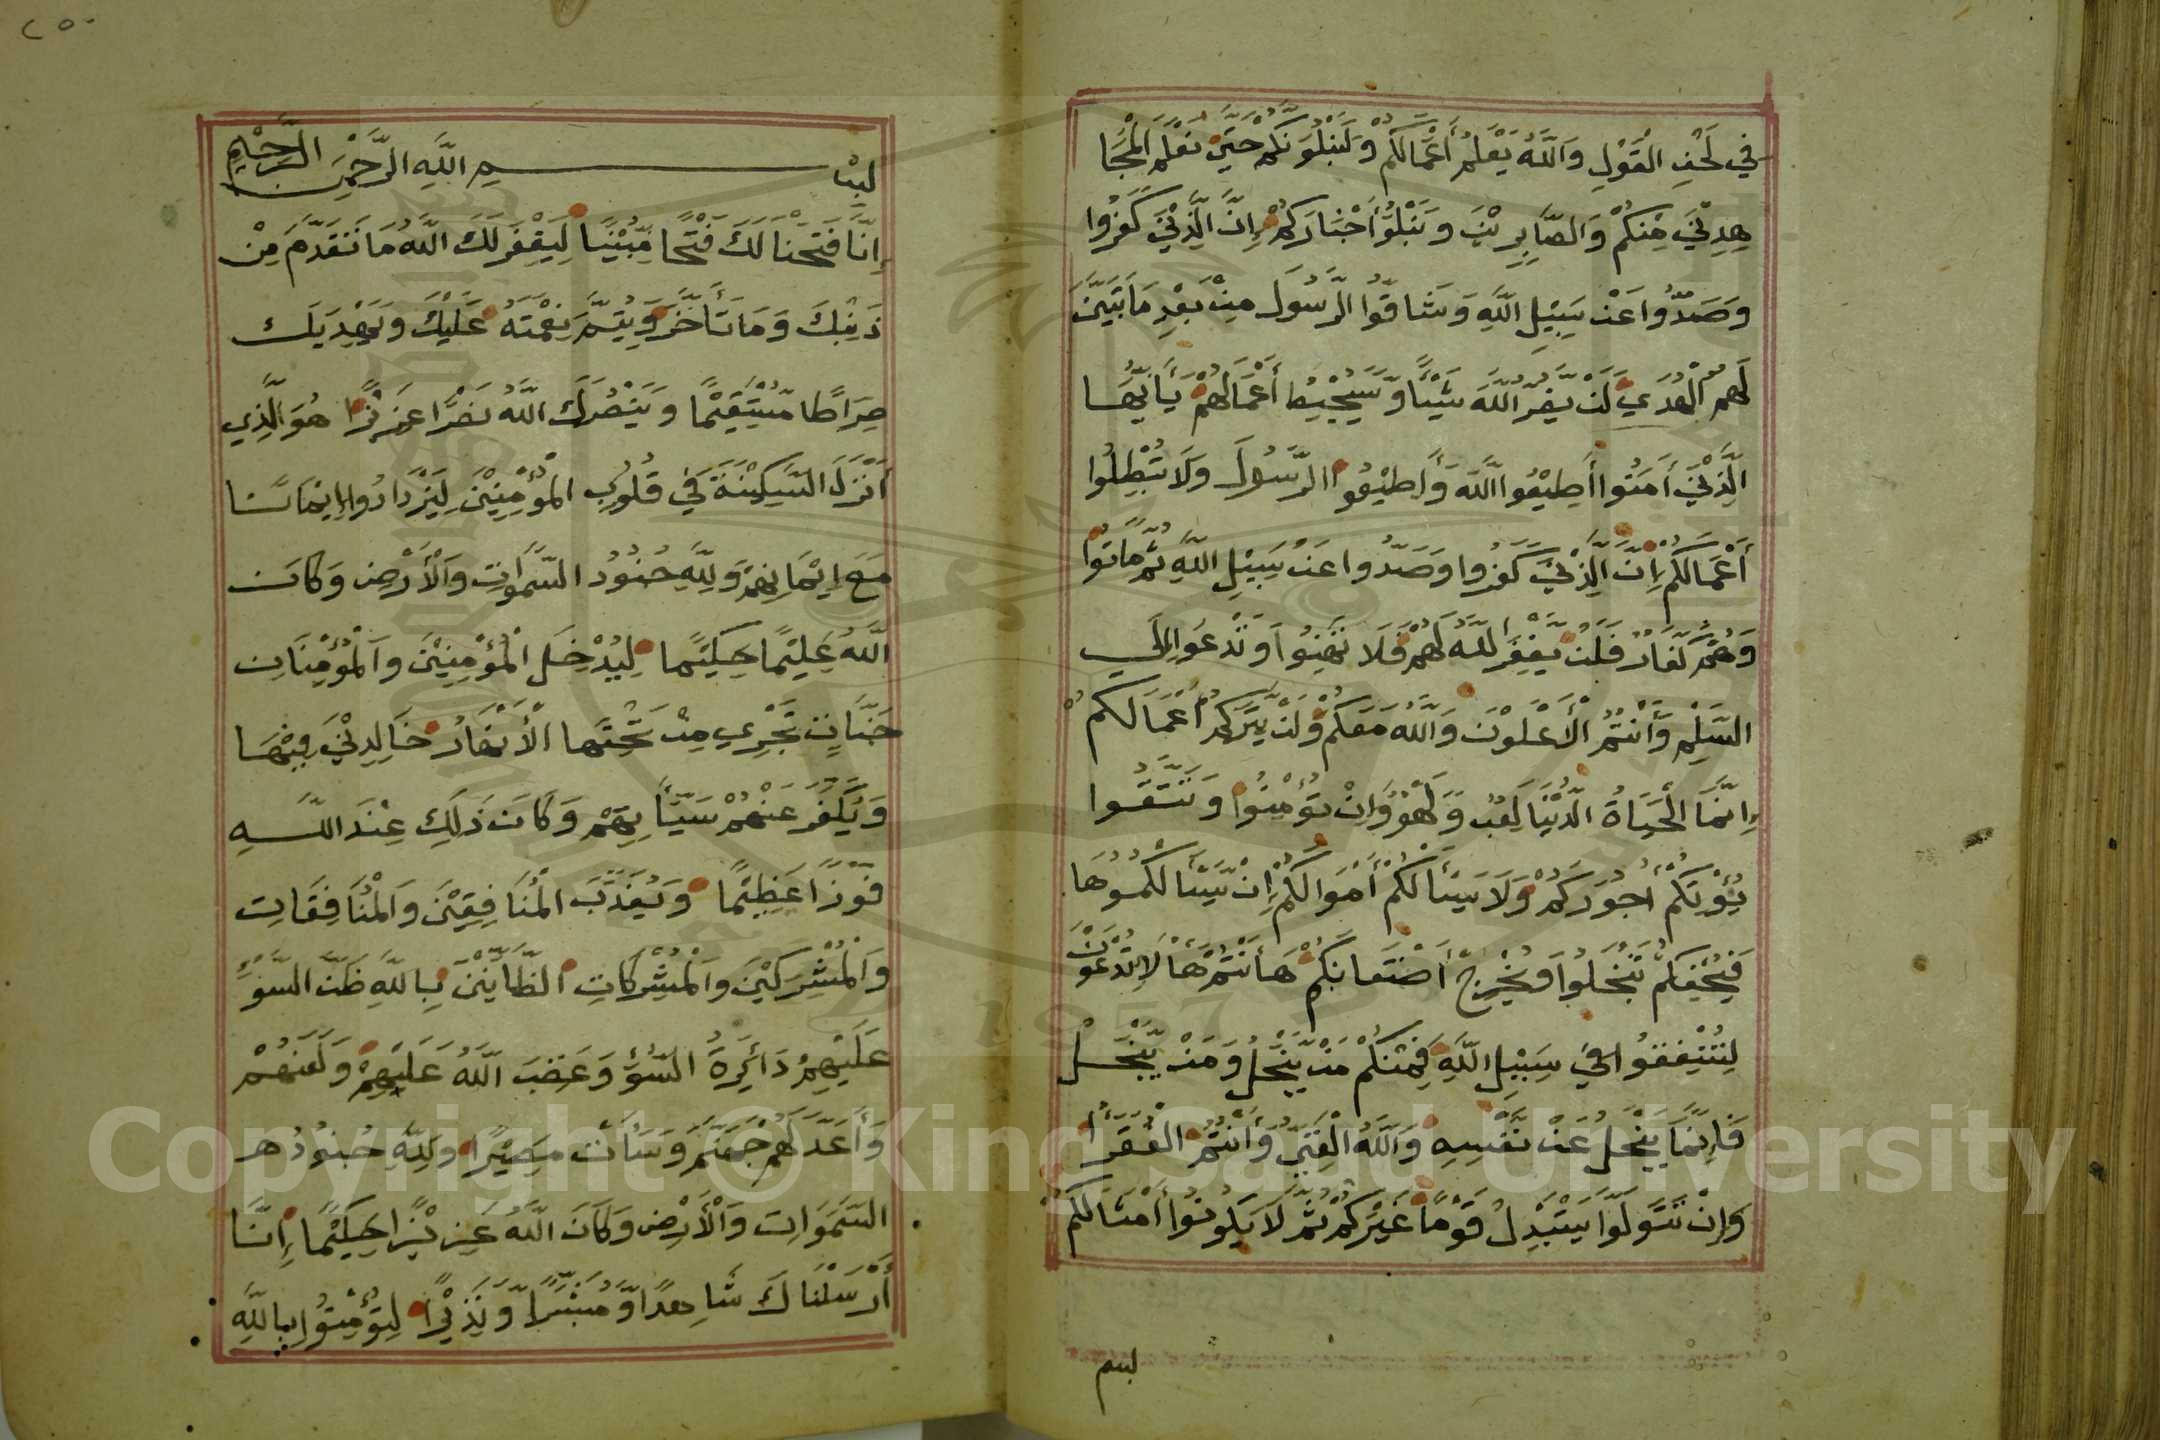 في لَحْنِ الْقَوْلِ وَاللَّهُ يَعْلَمُ أَعْمَالَكُمْ وَلَنَبْلُوَنَّكُمْ حَتَّىٰ نَعْلَمَ الْمُجَا
هِدِيْنَ مِنكُمْ وَالصَّابِرِيْنَ وَنَبْلُوَأَخْبَارَكُمْ إِنَّ الَّذِيْنَ كَفَرُوا
وَصَدُّوا عَنْ سَبِيْلِ اللَّهِ وَشَاقُّوا الرَّسُولَ مِنْ بَعْدِ مَا تَبَيَّنَ
لَهُمُ الْهُدَي لَنْ يَّضُرُّ اللَّهَ شَيْئًا وَّسَيُحْبِطُ أَعْمَالَهُمْ يَأَيُّهَا
الَّذِيْنَ أَمَنُوا أَطِيْعُوا اللَّهَ وَأَطِيْعُوا الرَّسُولَ وَلَا تُبْطِلُوا
أَعْمَالَكُمْ إِنَّ الَّذِيْنَ كَفَرُوا وَصَدُّوا عَنْ سَبِيْلِ اللَّهِ ثُمَّ مَاتُوا
وَهُمْ كُفَّارٌ فَلَنْ يَّغْفِرَ اللَّهُ لَهُمْ فَلَا تَهِنُوا وَتَدْعُوا إِلَي
السَّلْمِ وَأَنْتُمُ الْأَعْلَوْنَ وَاللَّهُ مَعَكُمْ وَلَنْ يَّتِرَكُمْ أَعْمَالَكُمْ
إِنَّمَا الْحَيَاةُ الدُّنْيَا لَعِبٌ وَّلَهْوٌ وَإِنْ تُؤْمِنُوا وَتَتَّقُوا
يُؤْتِكُمْ أُجُورَكُمْ وَلَا يَسْأَلْكُمْ أَمْوَالَكُمْ إِنْ يَّسْأَلْكُمُوهَا
فَيُحْفِكُمْ تَبْخَلُوا وَيُخْرِجْ أَضْغَانَكُمْ هَاأَنْتُمْ هَؤُلَاءِ تُدْعَوْنَ
لِتُنْفِقُوا فِي سَبِيْلِ اللَّهِ فَمِنْكُمْ مَنْ يَّبْخَلُ وَمَنْ يَّبْخَلْ
فَإِنَّمَا يَبْخَلُ عَنْ نَّفْسِهِ وَاللَّهُ الْغَنِيُّ وَأَنْتُمُ الْفُقَرَآءُ
وَإِنْ تَتَوَلَّوْا يَسْتَبْدِلْ قَوْمًا غَيْرَكُمْ ثُمَّ لَا يَكُونُوا أَمْثَالَكُمْ
لبسم
٢٥٠
بسْمِ اللَّهِ الرَّحْمٰنِ الرَّحِيْمِ
إِنَّا فَتَحْنَا لَكَ فَتْحًا مُّبِيْنًا لِيَغْفِرَ لَكَ اللَّهُ مَا تَقَدَّمَ مِنْ
ذَنْبِكَ وَمَا تَأَخَّرَ وَيُتِمَّ نِعْمَتَهُ عَلَيْكَ وَيَهْدِيَكَ
صِرَاطًا مُّسْتَقِيْمًا وَيَنْصُرَكَ اللَّهُ نَصْرًا عَزِيْزًا هُوَ الَّذِي
أَنْزَلَ السَّكِيْنَةَ فِي قُلُوبِ الْمُؤْمِنِيْنَ لِيَزْدَادُوا إِيْمَانًا
مَعَ إِيْمَانِهِمْ وَلِلَّهِ جُنُوْدُ السَّمٰوَاتِ وَالْأَرْضِ وَكَانَ
اللَّهُ عَلِيْمًا حَكِيْمًا لِيُدْخِلَ الْمُؤْمِنِيْنَ وَالْمُؤْمِنَاتِ
جَنَّاتٍ تَجْرِي مِنْ تَحْتِهَا الْأَنْهَارُ خَالِدِيْنَ فِيْهَا
وَيُكَفِّرَ عَنْهُمْ سَيِّأَتِهِمْ وَكَانَ ذَلِكَ عِنْدَ اللَّهِ
فَوْزًا عَظِيْمًا وَيُعَذِّبَ الْمُنَافِقِيْنَ وَالْمُنَافِقَاتِ
وَالْمُشْرِكِيْنَ وَالْمُشْرِكَاتِ الظَّآنِّيْنَ بِاللَّهِ ظَنَّ السَّوْءِ
عَلَيْهِمْ دَائِرَةُ السَّوْءِ وَغَضِبَ اللَّهُ عَلَيْهِمْ وَلَعَنَهُمْ
وَأَعَدَّ لَهُمْ جَهَنَّمَ وَسَآءَتْ مَصِيْرًا وَلِلَّهِ جُنُوْدُ
السَّمَوَاتِ وَالْأَرْضِ وَكَانَ اللَّهُ عَزِيْزًا حَكِيْمًا إِنَّا
أَرْسَلْنَاكَ شَاهِدًا وَّمُبَشِّرًا وَّنَذِيْرًا لِتُؤْمِنُوا بِاللَّهِ
Copyright © King Saud University
1957